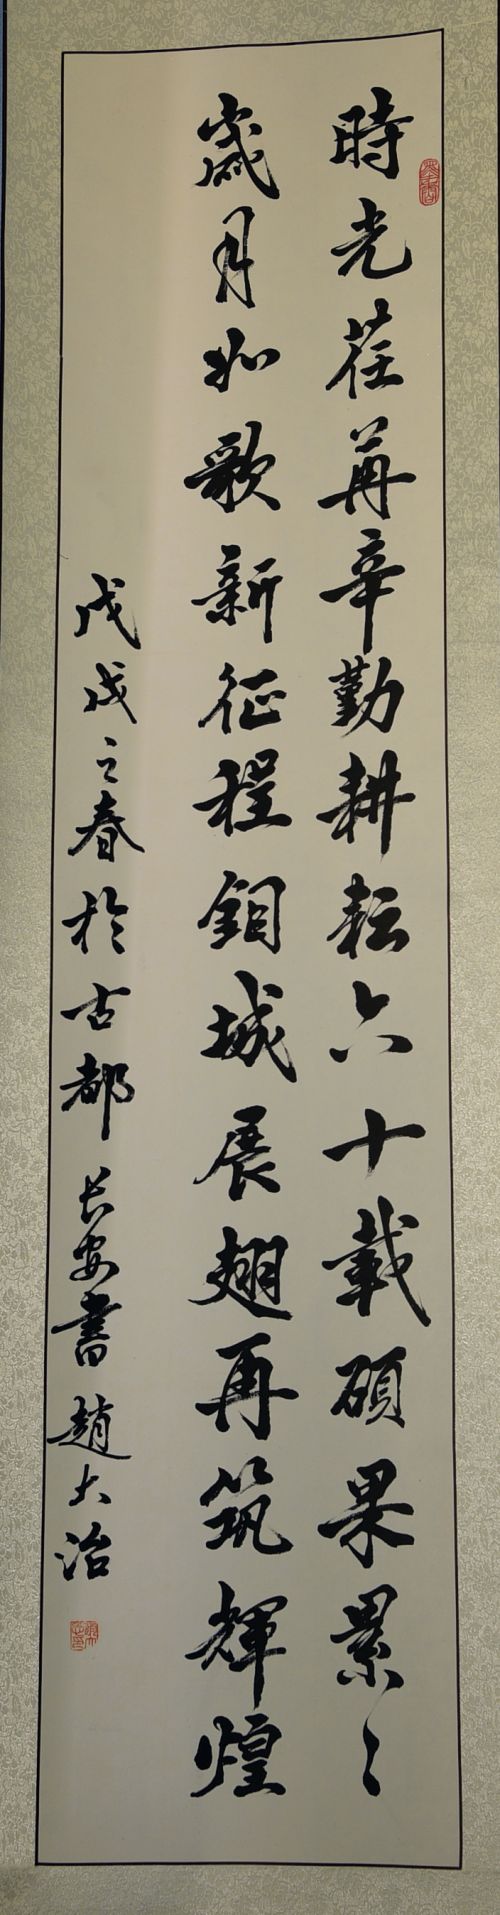 時光荏苒辛勤耕耘六十載碩果累々
歲月如歌新征程鉬城展翅再筑輝煌
戊戌之春於古都長安書趙大治